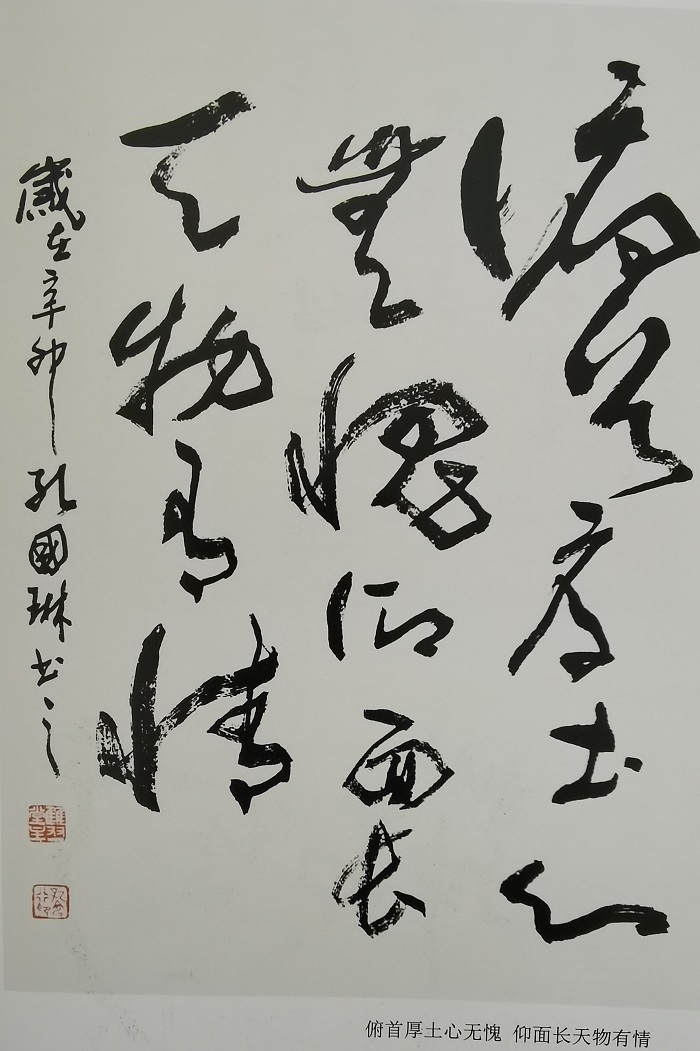 俯首厚土心
無愧仰面长
天物有情
歲在辛卯孔國琳书之
俯首厚土心无愧 仰面长天物有情